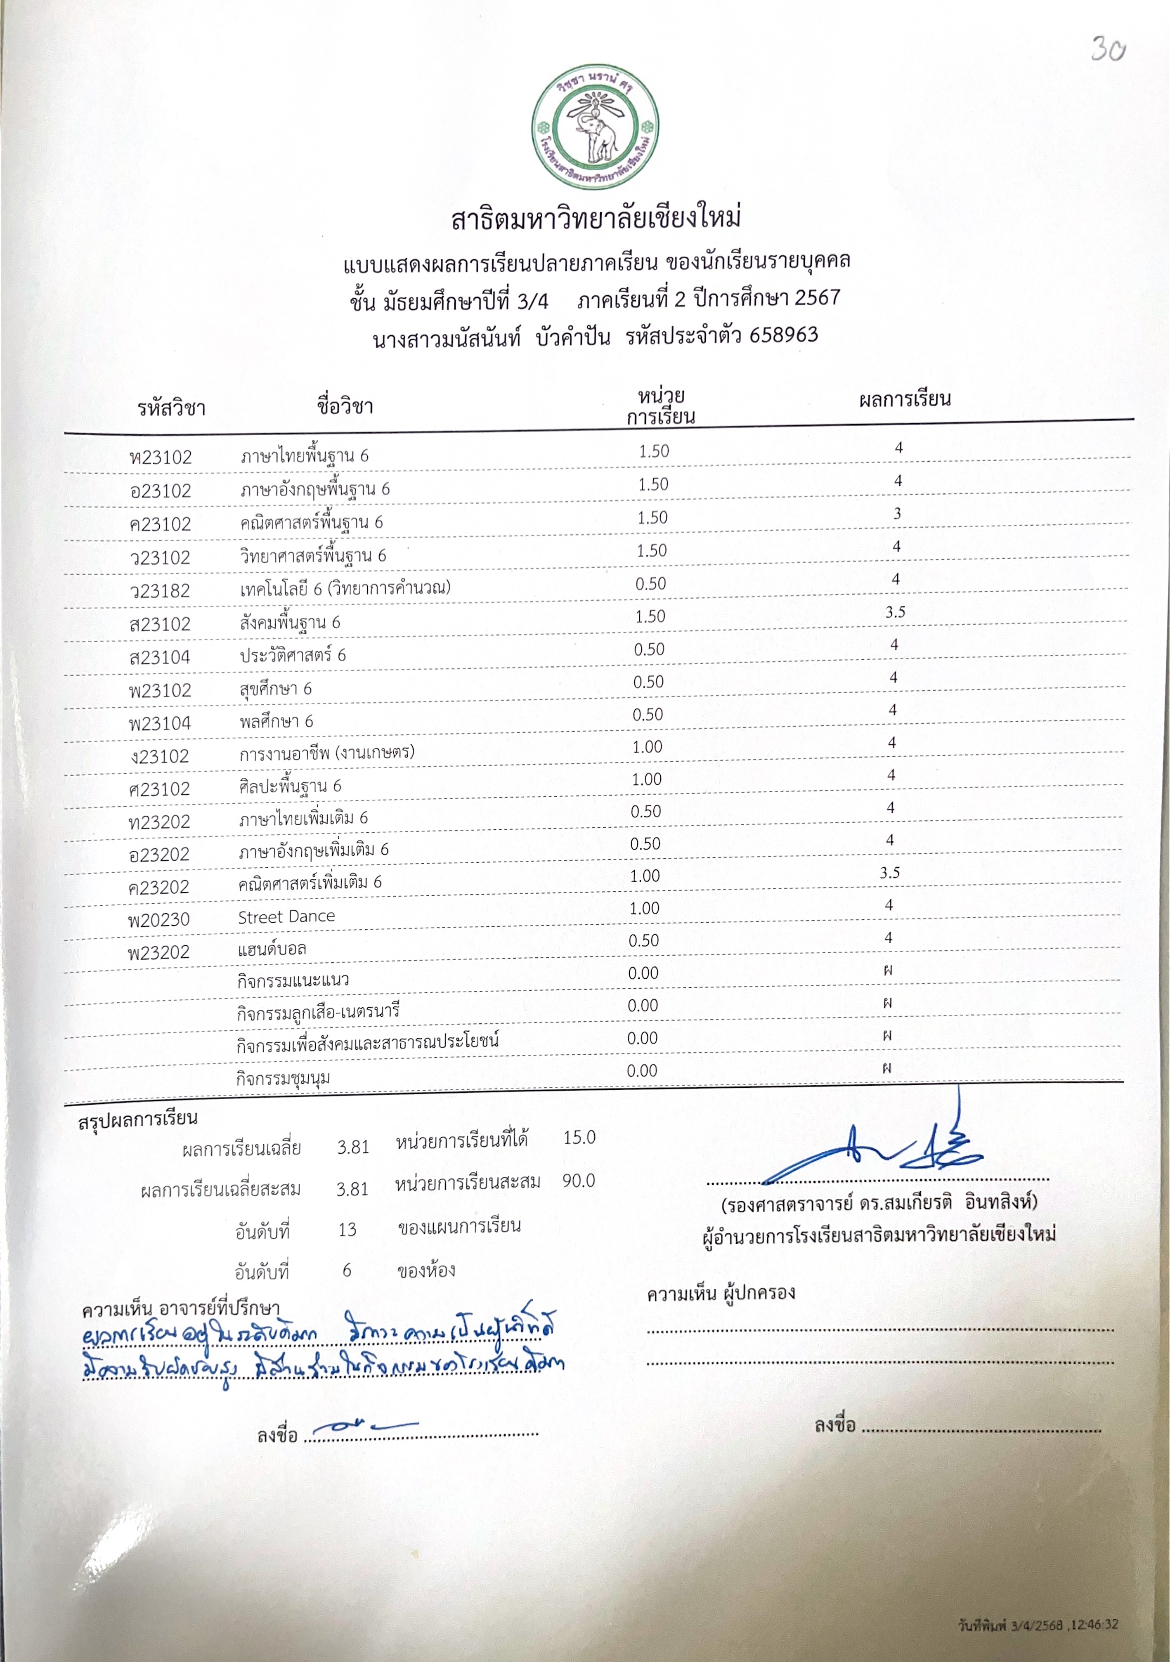 30
วิชฺชา นรานํ ศรี
โรงเรียนสาธิตมหาวิทยาลัยเชียงใหม่
สาธิตมหาวิทยาลัยเชียงใหม่
แบบแสดงผลการเรียนปลายภาคเรียน ของนักเรียนรายบุคคล
ชั้น มัธยมศึกษาปีที่ 3/4 ภาคเรียนที่ 2 ปีการศึกษา 2567
นางสาวมนัสนันท์ บัวคำปัน รหัสประจำตัว 658963
รหัสวิชา ชื่อวิชา หน่วยการเรียน ผลการเรียน
ท23102 ภาษาไทยพื้นฐาน 6 1.50 4
อ23102 ภาษาอังกฤษพื้นฐาน 6 1.50 4
ค23102 คณิตศาสตร์พื้นฐาน 6 1.50 3
ว23102 วิทยาศาสตร์พื้นฐาน 6 1.50 4
ว23182 เทคโนโลยี 6 (วิทยาการคำนวณ) 0.50 4
ส23102 สังคมพื้นฐาน 6 1.50 3.5
ส23104 ประวัติศาสตร์ 6 0.50 4
พ23102 สุขศึกษา 6 0.50 4
พ23104 พลศึกษา 6 0.50 4
ง23102 การงานอาชีพ (งานเกษตร) 1.00 4
ศ23102 ศิลปะพื้นฐาน 6 1.00 4
ท23202 ภาษาไทยเพิ่มเติม 6 0.50 4
อ23202 ภาษาอังกฤษเพิ่มเติม 6 0.50 4
ค23202 คณิตศาสตร์เพิ่มเติม 6 1.00 3.5
พ20230 Street Dance 1.00 4
พ23202 แฮนด์บอล 0.50 4
กิจกรรมแนะแนว 0.00 ผ
กิจกรรมลูกเสือ-เนตรนารี 0.00 ผ
กิจกรรมเพื่อสังคมและสาธารณประโยชน์ 0.00 ผ
กิจกรรมชุมนุม 0.00 ผ
สรุปผลการเรียน
ผลการเรียนเฉลี่ย 3.81 หน่วยการเรียนที่ได้ 15.0
ผลการเรียนเฉลี่ยสะสม 3.81 หน่วยการเรียนสะสม 90.0
อันดับที่ 13 ของแผนการเรียน
อันดับที่ 6 ของห้อง
(รองศาสตราจารย์ ดร.สมเกียรติ อินทสิงห์)
ผู้อำนวยการโรงเรียนสาธิตมหาวิทยาลัยเชียงใหม่
ความเห็น อาจารย์ที่ปรึกษา
ผลการเรียนอยู่ในระดับดีมาก มีภาวะความเป็นผู้นำที่ดี
มีความรับผิดชอบสูง มีส่วนร่วมในกิจกรรมของโรงเรียนดีมาก
ลงชื่อ
ความเห็น ผู้ปกครอง
ลงชื่อ
วันที่พิมพ์ 3/4/2568 ,12:46:32